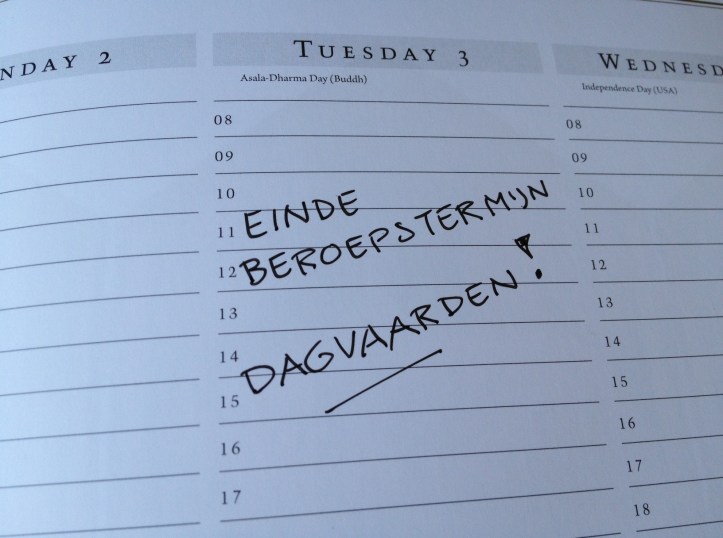 NDAY 2
TUESDAY 3
WEDNESD
Asala-Dharma Day (Buddh)
Independence Day (USA)
08
09
10
11
12
13
14
15
16
17
EINDE
BEROEPSTERMIJN
DAGVAARDEN!
08
09
10
11
12
13
14
15
16
17
18